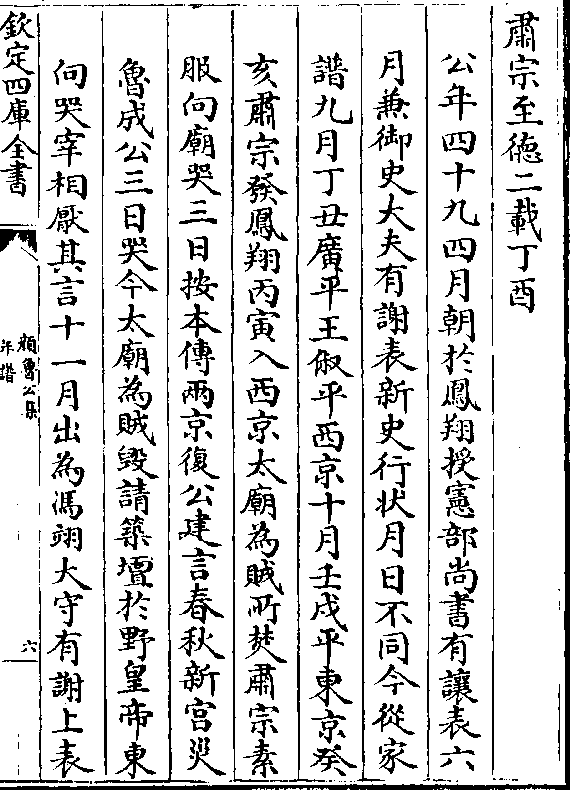 肅宗至德二載丁酉
公年四十九四月朝於鳳翔授憲部尚書有讓表六
月兼御史大夫有謝表新史行狀月日不同今從家
譜九月丁丑廣平王俶平西京十月壬戌平東京癸
亥肅宗發鳳翔丙寅入西京太廟為賊所焚肅宗素
服向廟哭三日按本傳兩京復公建言春秋新宫災
魯成公三日哭今太廟為賊毀請築壇於野皇帝東
向哭宰相厭其言十一月出為馮翊大守有謝上表
欽定四庫全書
顔魯公集
年譜
六